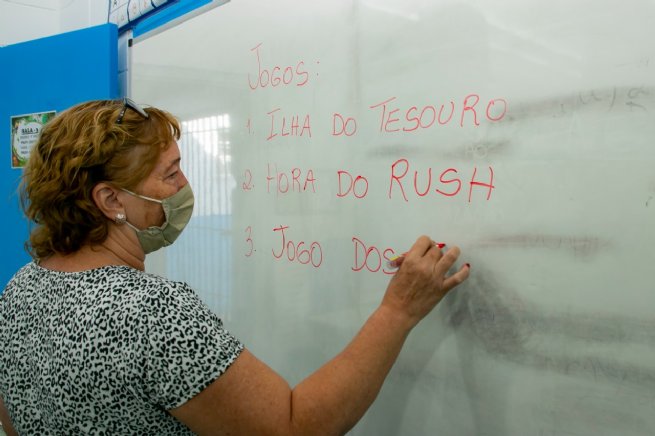 SALA - 3
JOGOS:
1. ILHA DO TESOURO
2. HORA DO RUSH
3. JOGO DOS